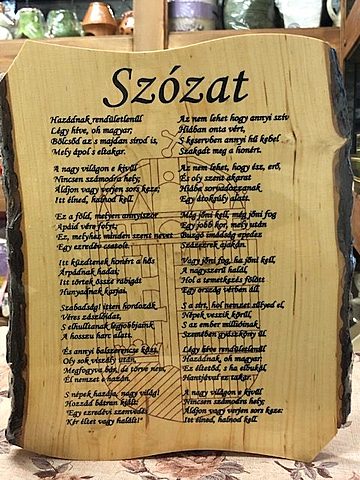 Szózat
Hazádnak rendületlenűl
Légy híve, oh magyar;
Bölcsőd az s majdan sírod is,
Mely ápol s eltakar.
A nagy világon e kívűl
Nincsen számodra hely;
Áldjon vagy verjen sors keze;
Itt élned, halnod kell.
Ez a föld, melyen annyiszor
Apáid vére folyt;
Ez, melyhez minden szent nevet
Egy ezredév csatolt.
Itt küzdtenek honért a hős
Árpádnak hadai;
Itt törtek össze rabigát
Hunyadnak karjai.
Szabadság! itten hordozák
Véres zászlóidat,
S elhulltanak legjobbjaink
A hosszu harc alatt.
És annyi balszerencse közt,
Oly sok viszály után,
Megfogyva bár, de törve nem,
Él nemzet e hazán.
S népek hazája, nagy világ!
Hozzád bátran kiált:
"Egy ezredévi szenvedés
Kér éltet vagy halált!"
Az nem lehet hogy annyi szív
Hiában onta vért,
S keservben annyi hű kebel
Szakadt meg a honért.
Az nem lehet, hogy ész, erő,
És oly szent akarat
Hiába sorvadozzanak
Egy átoksúly alatt.
Még jőni kell, még jőni fog
Egy jobb kor, mely után
Buzgó imádság epedez
Százezrek ajakán.
Vagy jőni fog, ha jőni kell,
A nagyszerű halál,
Hol a temetkezés fölött
Egy ország vérben áll.
S a sírt, hol nemzet sűlyed el,
Népek veszik körűl,
S az ember millióinak
Szemében gyászköny űl.
Légy híve rendületlenűl
Hazádnak, oh magyar;
Ez éltetőd, s ha elbukál,
Hantjával ez takar.
A nagy világon e kívűl
Nincsen számodra hely;
Áldjon vagy verjen sors keze:
Itt élned, halnod kell.